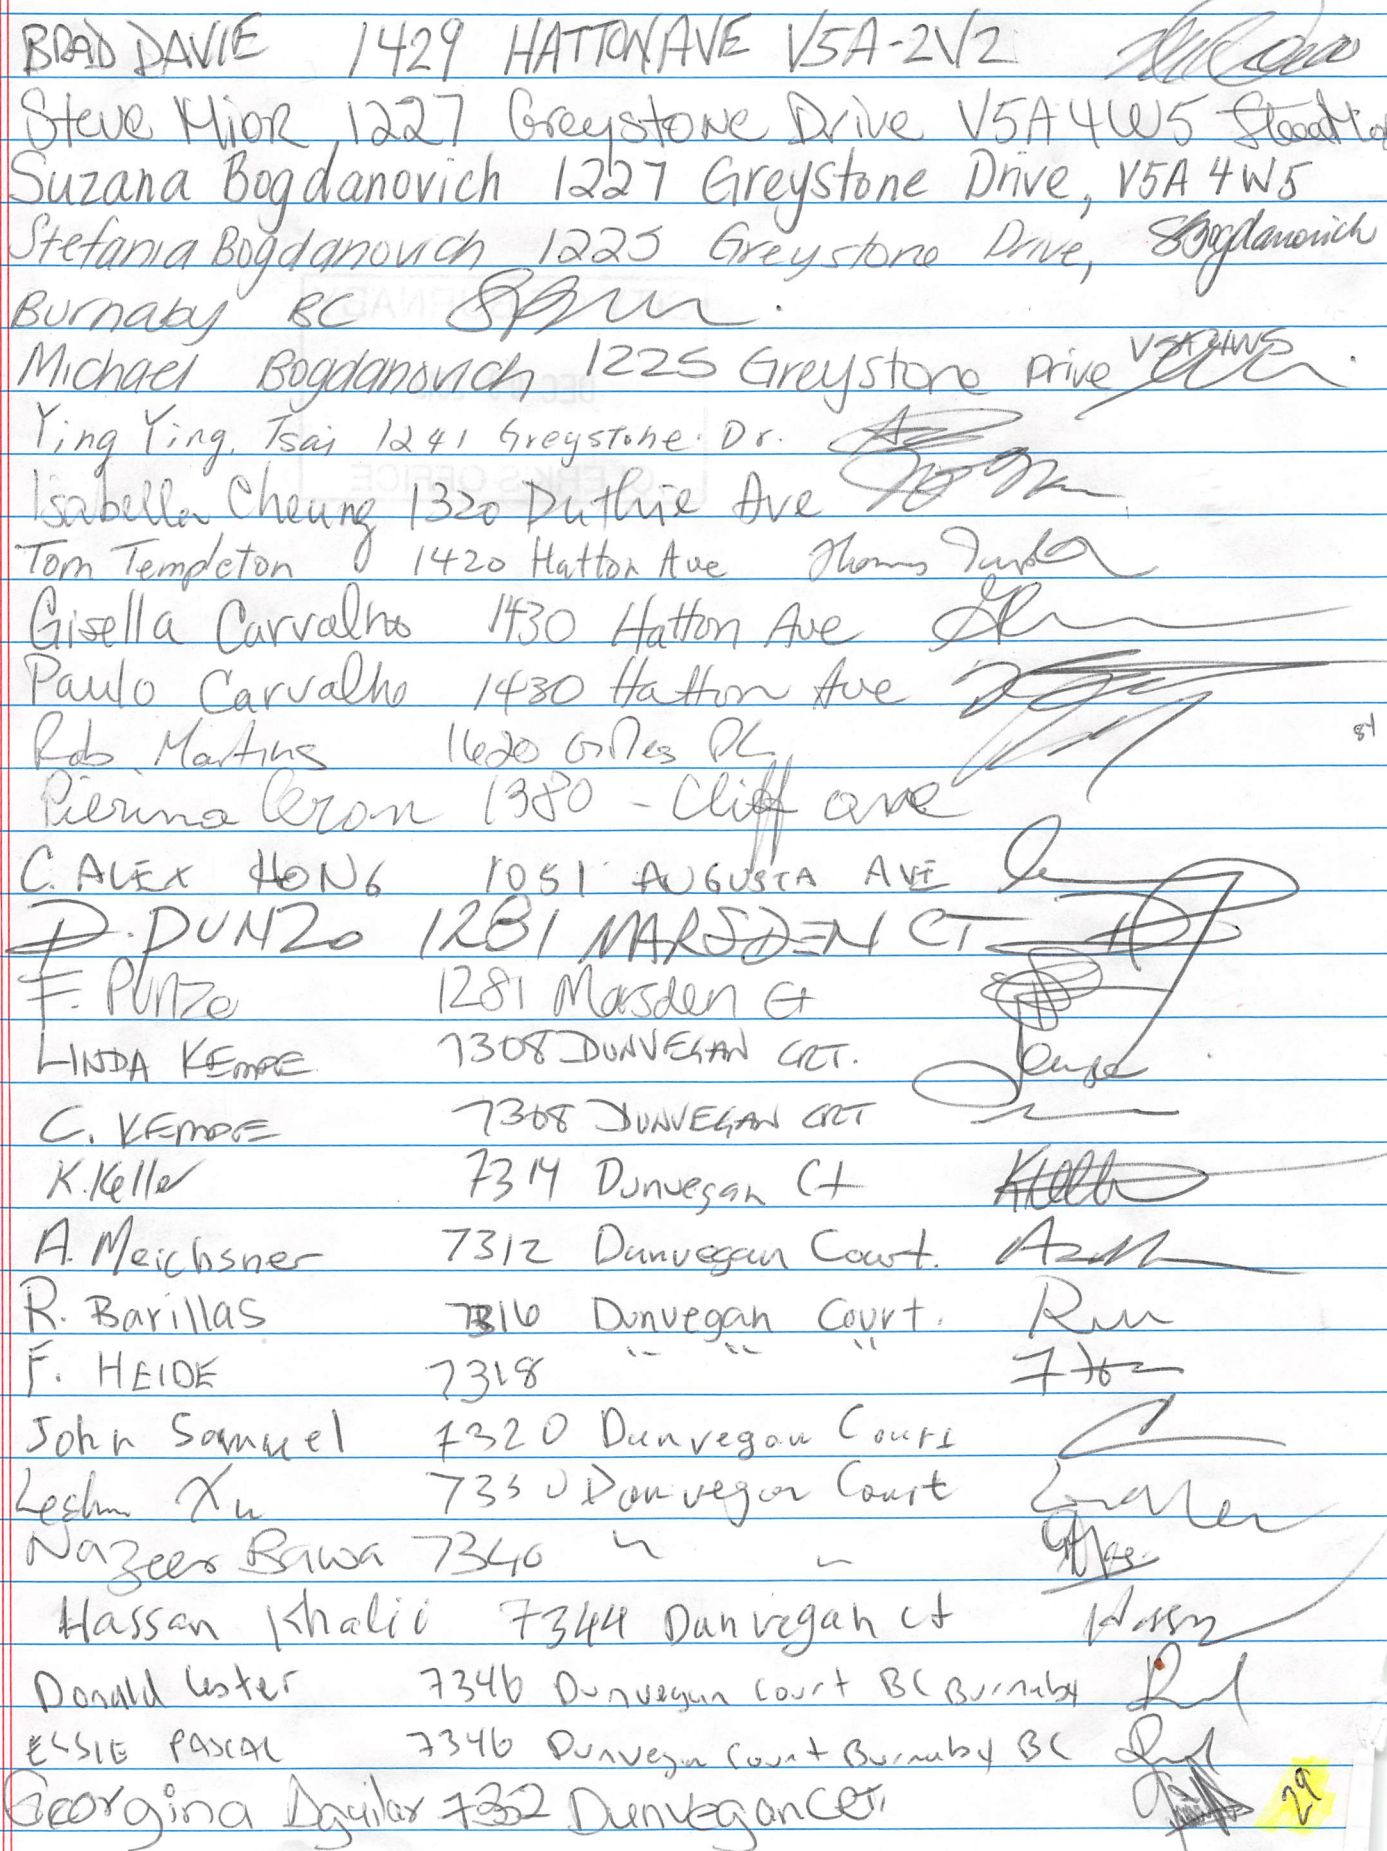 BRAD DAVIE 1429 HATTON AVE V5A-2V2
Steve Mior 1227 Greystone Drive V5A 4W5
Suzana Bogdanovich 1227 Greystone Drive, V5A 4W5
Stefania Bogdanovich 1225 Greystone Drive, SBogdanovich
Burnaby BC
Michael Bogdanovich 1225 Greystone Drive V5A 4W5
Ying Ying, Tsai 1241 Greystone Dr.
Isabella Cheung 1320 Duthie Ave
Tom Templeton 1420 Hatton Ave Thomas
Gisella Carvalho 1430 Hatton Ave
Paulo Carvalho 1430 Hatton Ave
Rob Martins 1620 Giles PL
Pierina Ceron 1380 - Cliff ave
C. ALEX HONG 1051 AUGUSTA AVE
D. PUNZO 1281 MARSDEN CT
F. Punzo 1281 Marsden Ct
LINDA KEMPE 7308 DUNVEGAN CRT.
C. KEMPE 7308 DUNVEGAN CRT
K. Keller 7314 Dunvegan Ct
A. Meichsner 7312 Dunvegan Court.
R. Barillas 7316 Dunvegan Court.
F. HEIDE 7318 " " "
John Samuel 7320 Dunvegan Court
Xu 7330 Dunvegan Court
Nazeer Bawa 7340 " "
Hassan Khalil 7344 Dunvegan ct
Donald Lester 7346 Dunvegan Court BC Burnaby
ESSIE PASCAL 7346 Dunvegan Court Burnaby BC
Georgina Aguilar 7332 Dunvegan CRT.
29